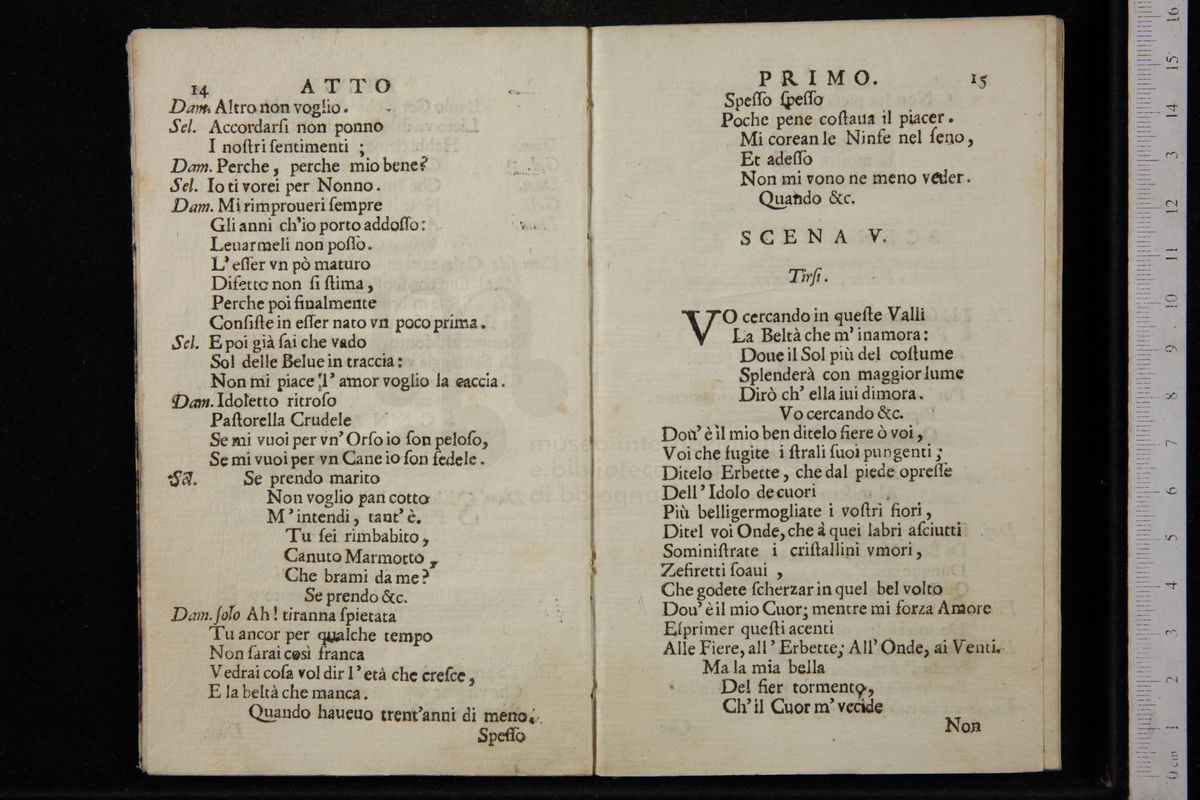 14 ATTO
Dam. Altro non voglio.
Sel. Accordarſi non ponno
I noſtri ſentimenti ;
Dam. Perche, perche mio bene?
Sel. Io ti vorei per Nonno.
Dam. Mi rimproueri ſempre
Gli anni ch'io porto addoſſo:
Leuarmeli non poſſo.
L'eſſer vn pò maturo
Difetto non ſi ſtima,
Perche poi finalmente
Conſiſte in eſſer nato vn poco prima.
Sel. E poi già ſai che vado
Sol delle Belue in traccia:
Non mi piace l'amor voglio la caccia.
Dam. Idoletto ritroſo
Paſtorella Crudele
Se mi vuoi per vn' Orſo io ſon peloſo,
Se mi vuoi per vn Cane io ſon fedele.
Sel. Se prendo marito
Non voglio pan cotto
M'intendi, tant'è.
Tu ſei rimbabito,
Canuto Marmotto,
Che brami da me?
Se prendo &c.
Dam. ſolo Ah! tiranna ſpietata
Tu ancor per qualche tempo
Non ſarai così franca
Vedrai coſa vol dir l'età che creſce,
E la beltà che manca.
Quando haueuo trent'anni di meno.
Speſſo
PRIMO. 15
Speſſo ſpeſſo
Poche pene coſtaua il piacer.
Mi corean le Ninfe nel ſeno,
Et adeſſo
Non mi vono ne meno veder.
Quando &c.
SCENA V.
Tirſi.
VO cercando in queſte Valli
La Beltà che m'inamora:
Doue il Sol più del coſtume
Splenderà con maggior lume
Dirò ch'ella iui dimora.
Vo cercando &c.
Dou'è il mio ben ditelo fiere ò voi,
Voi che fugite i ſtrali ſuoi pungenti ;
Ditelo Erbette, che dal piede opreſſe
Dell'Idolo de cuori
Più belli germogliate i voſtri fiori,
Ditel voi Onde, che à quei labri aſciutti
Sominiſtrate i criſtallini vmori,
Zefiretti ſoaui ,
Che godete ſcherzar in quel bel volto
Dou'è il mio Cuor; mentre mi forza Amore
Eſprimer queſti acenti
Alle Fiere, all'Erbette; All'Onde, ai Venti.
Ma la mia bella
Del fier tormento,
Ch'il Cuor m'vccide
Non
museo inte
e biblioteca
di bologna
0 cm 1 2 3 4 5 6 7 8 9 10 11 12 13 14 15 16